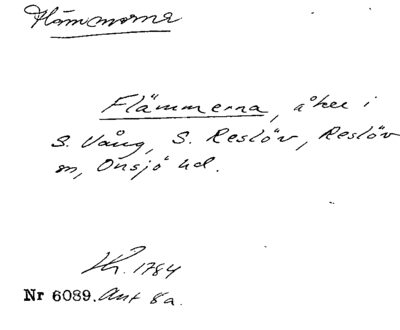 Flämmorna
Flämmerna, åker i
S. Vång, S. Reslöv, Reslöv
sn, Onsjö hd.
Kr. 1784
Nr 6089. Akt 8a.